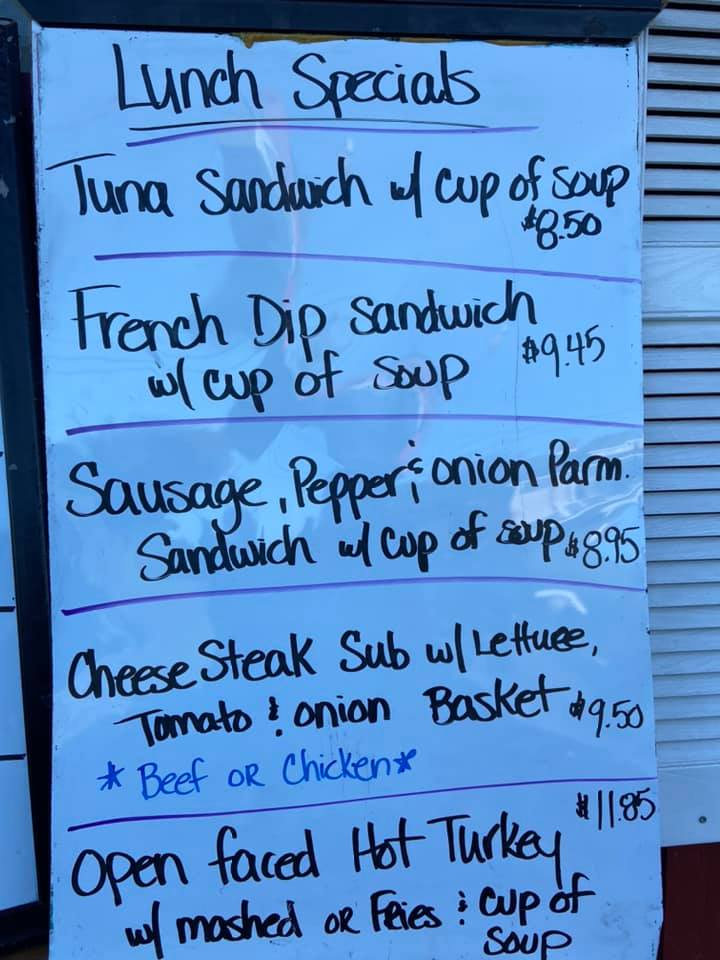 Lunch Specials
Tuna Sandwich w/ cup of soup
$8.50
French Dip Sandwich
w/ cup of soup $9.45
Sausage, Pepper & onion Parm.
Sandwich w/ cup of soup $8.95
Cheese Steak Sub w/ Lettuce,
Tomato & onion Basket $9.50
* Beef OR Chicken *
$11.85
Open faced Hot Turkey
w/ mashed OR Fries & cup of
soup